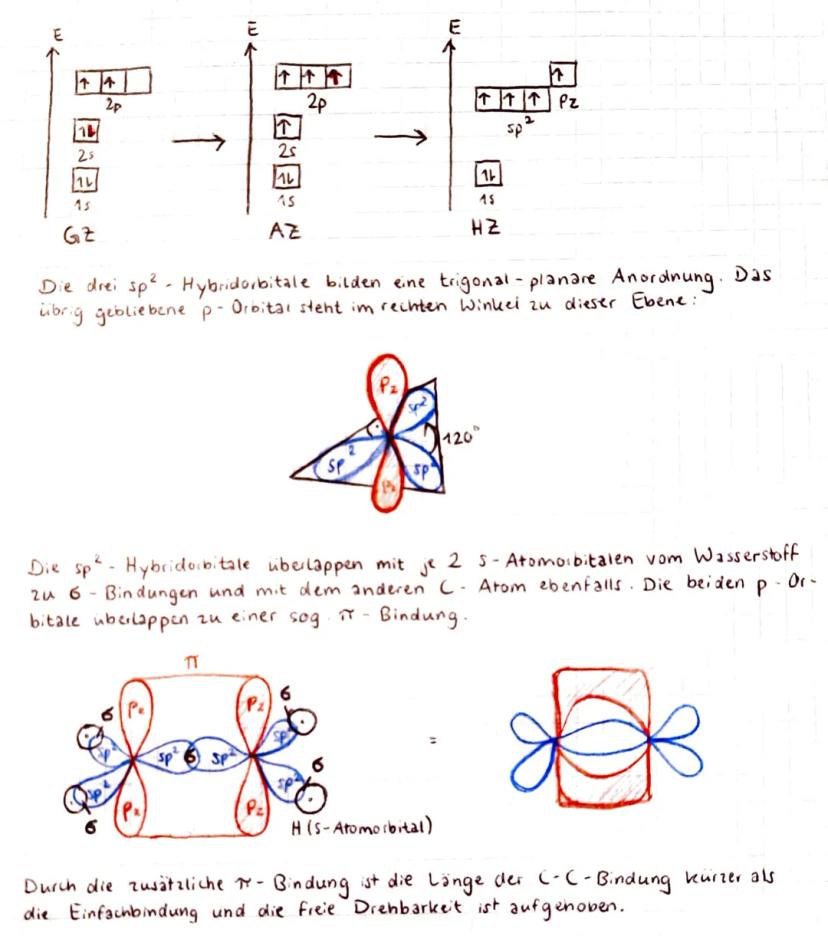 E E E
↑ ↑ ↑ ↑ ↑ ↑
2p 2p ↑ ↑ ↑ pz
sp²
↑↓ ↑
2s 2s
↑↓ ↑↓ ↑↓
1s 1s 1s
GZ AZ HZ
Die drei sp² - Hybridorbitale bilden eine trigonal - planare Anordnung. Das
übrig gebliebene p - Orbital steht im rechten Winkel zu dieser Ebene:
Pz
sp²
120°
sp² sp²
Pz
Die sp² - Hybridorbitale überlappen mit je 2 s - Atomorbitalen vom Wasserstoff
zu σ - Bindungen und mit dem anderen C - Atom ebenfalls. Die beiden p - Or-
bitale überlappen zu einer sog. π - Bindung.
π
Pz Pz σ
σ
sp² sp²
sp² σ sp² =
sp² sp² σ
Pz Pz
σ H (s-Atomorbital)
Durch die zusätzliche π - Bindung ist die Länge der C-C-Bindung kürzer als
die Einfachbindung und die freie Drehbarkeit ist aufgehoben.